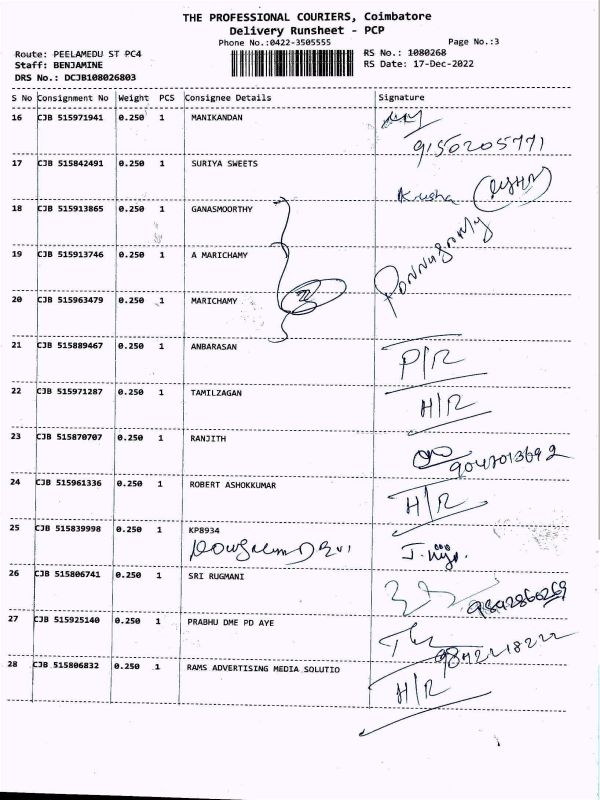 THE PROFESSIONAL COURIERS, Coimbatore
Delivery Runsheet - PCP
Phone No.:0422-3505555 Page No.:3
Route: PEELAMEDU ST PC4 RS No.: 1080268
Staff: BENJAMINE RS Date: 17-Dec-2022
DRS No.: DCJB108026803
S No Consignment No Weight PCS Consignee Details Signature
16 CJB 515971941 0.250 1 MANIKANDAN
9150205771
17 CJB 515842491 0.250 1 SURIYA SWEETS
18 CJB 515913865 0.250 1 GANASMOORTHY
19 CJB 515913746 0.250 1 A MARICHAMY
20 CJB 515963479 0.250 1 MARICHAMY
21 CJB 515889467 0.250 1 ANBARASAN P/R
22 CJB 515971287 0.250 1 TAMILZAGAN H/R
23 CJB 515870707 0.250 1 RANJITH
24 CJB 515961336 0.250 1 ROBERT ASHOKKUMAR H/R
25 CJB 515839998 0.250 1 KP8934
26 CJB 515806741 0.250 1 SRI RUGMANI
27 CJB 515925140 0.250 1 PRABHU DME PD AYE
28 CJB 515806832 0.250 1 RAMS ADVERTISING MEDIA SOLUTIO
H/R